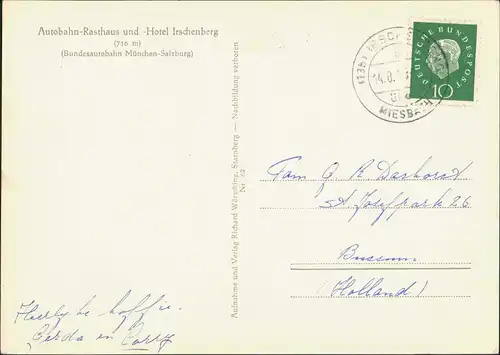 Autobahn-Rasthaus und -Hotel Irschenberg
(716 m)
(Bundesautobahn München-Salzburg)
Aufnahme und Verlag Richard Wörsching, Starnberg — Nachbildung verboten
Nr. 62
DEUTSCHE BUNDESPOST
10
(13b) IRSCHENBERG
14.8.
ÜBER
MIESBACH
Fam G R Dashorst
St Josefpark 26
Bussum.
(Holland)
Hartelyke
Gerda en Corry